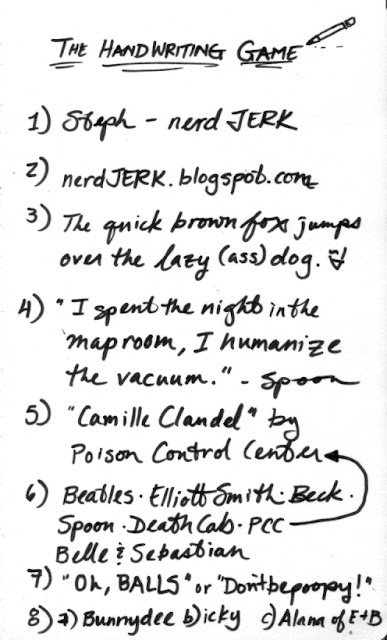 THE HANDWRITING GAME
1) Steph - nerd JERK
2) nerdJERK.blogspot.com
3) The quick brown fox jumps
over the lazy (ass) dog.
4) "I spent the night in the
map room, I humanize
the vacuum." - Spoon
5) "Camille Clandel" by
Poison Control Center
6) Beatles · Elliott Smith · Beck ·
Spoon · Death Cab · PCC
Belle & Sebastian
7) "Oh, BALLS" or "Don't be poopy!"
8) a) Bunnydee b) icky c) Alana of E+B